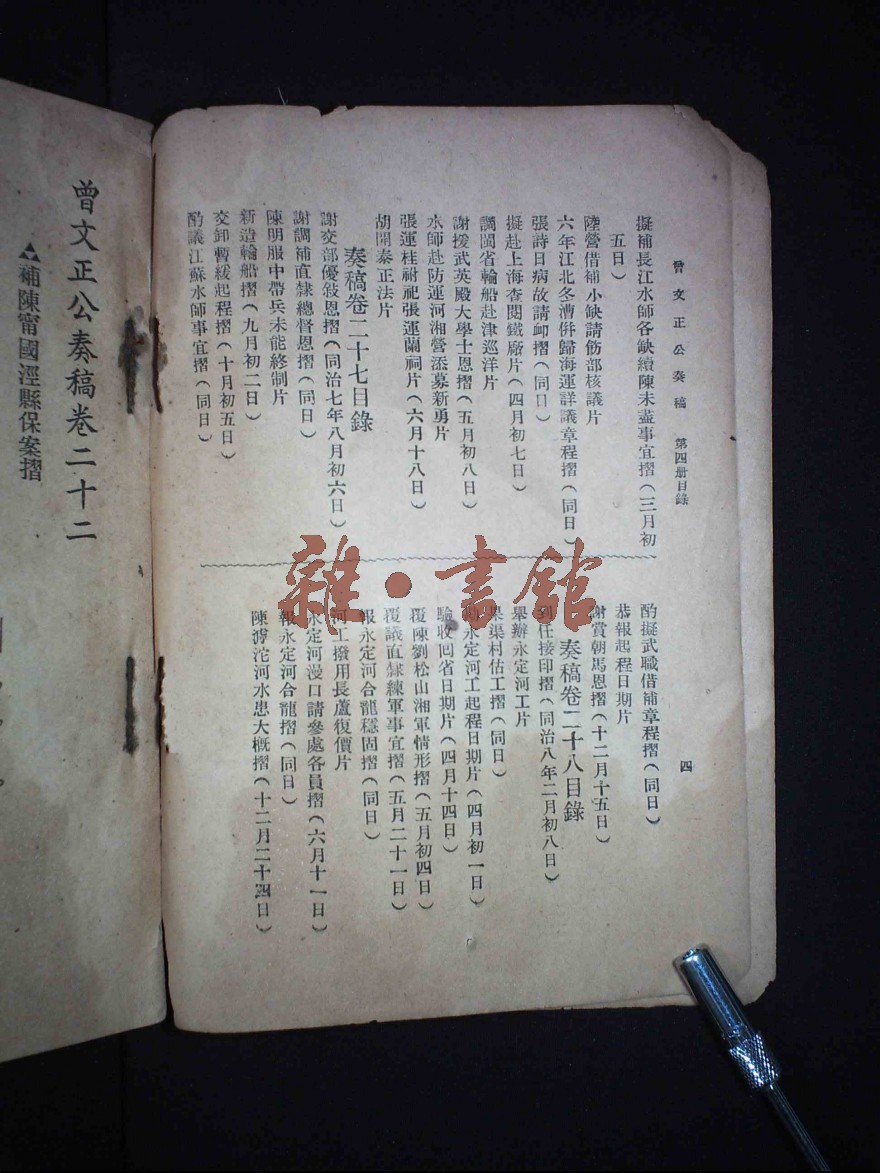 曾文正公奏稿　第四册目錄
四
擬補長江水師各缺續陳未盡事宜摺（三月初
五日）
陸營借補小缺請飭部核議片
六年江北冬漕併歸海運詳議章程摺（同日）
張詩日病故請卹摺（同日）
擬赴上海查閱鐵廠片（四月初七日）
調閩省輪船赴津巡洋片
謝授武英殿大學士恩摺（五月初八日）
水師赴防運河湘營添募新勇片
張運桂祔祀張運蘭祠片（六月十八日）
胡開泰正法片
奏稿卷二十七目錄
謝交部優敍恩摺（同治七年八月初六日）
謝調補直隸總督恩摺（同日）
陳明服中帶兵未能終制片
新造輪船摺（九月初二日）
交卸暫緩起程摺（十月初五日）
酌議江蘇水師事宜摺（同日）
酌擬武職借補章程摺（同日）
恭報起程日期片
謝賞朝馬恩摺（十二月十五日）
奏稿卷二十八目錄
到任接印摺（同治八年二月初八日）
舉辦永定河工片
果渠村估工摺（同日）
勘永定河工起程日期片（四月初一日）
驗收回省日期片（四月十四日）
覆陳劉松山湘軍情形摺（五月初四日）
覆議直隸練軍事宜摺（五月二十一日）
報永定河合龍穩固摺（同日）
河工撥用長蘆復價片
永定河漫口請參處各員摺（六月十一日）
報永定河合龍摺（同日）
陳滹沱河水患大概摺（十二月二十四日）
曾文正公奏稿卷二十二
補陳甯國涇縣保案摺
雜·書館